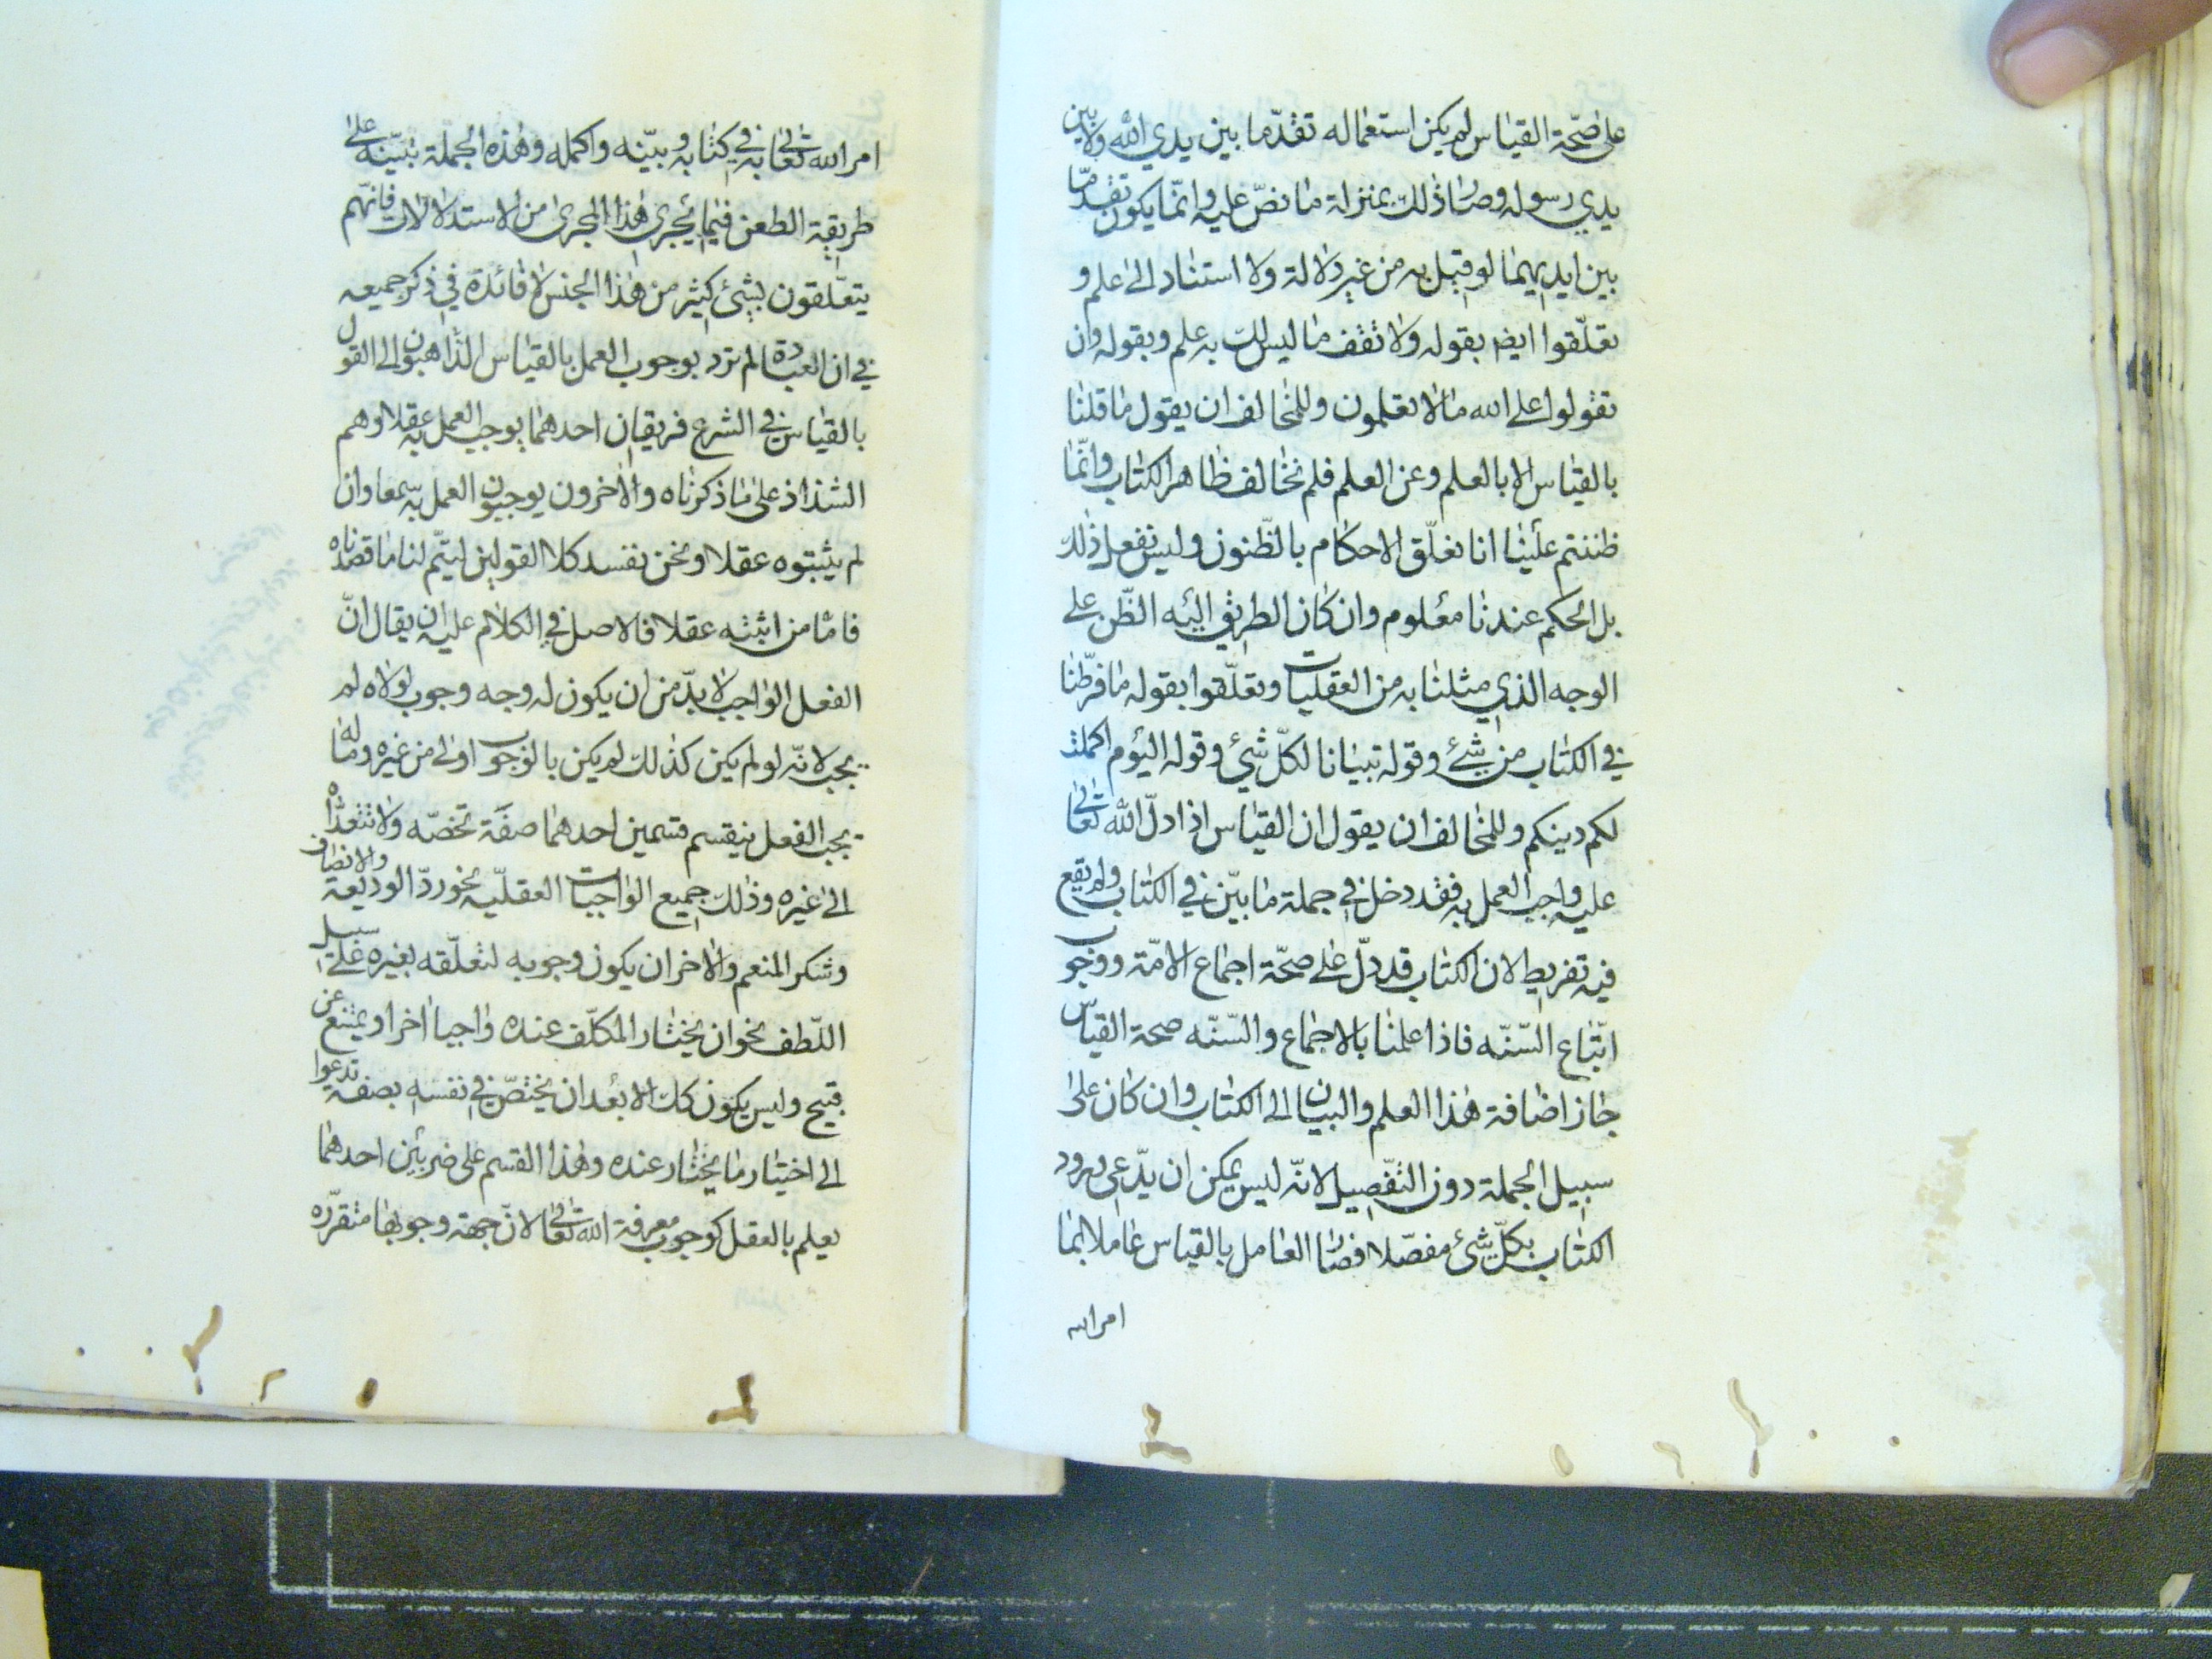 على صحّة القياس لم يكن استعماله تقدّما بين يدي الله ولا بين
يدي رسوله وصار ذلك بمنزلة ما نصّ عليه وانّما يكون تقدّما
بين ايديهما لو قيل به من غير دلالة ولا استناد الى علم و
تعلّقوا ايضا بقوله ولا تقف ما ليس لك به علم وبقوله وان
تقولوا على الله ما لا تعلمون وللمخالف ان يقول ما قلنا
بالقياس الا بالعلم وعن العلم فلم نخالف ظاهر الكتاب وانّما
ظننتم علينا انا نعلّق الاحكام بالظّنون وليس نفعل ذلك
بل الحكم عندنا معلوم وان كان الطريق اليه الظّن على
الوجه الذي مثلنا به من العقليات وتعلّقوا بقوله ما فرّطنا
في الكتاب من شيء وقوله تبيانا لكلّ شيء وقوله اليوم اكملت
لكم دينكم وللمخالف ان يقول ان القياس اذا دلّ الله تعالى
عليه واجب العمل به فقد دخل في جملة ما بيّن في الكتاب ولم يقع
فيه تفريط لان الكتاب قد دلّ على صحّة اجماع الامّة ووجوب
اتّباع السّنّه فاذا علمنا بالاجماع والسّنّه صحة القياس
جاز اضافة هذا العلم والبيان الى الكتاب وان كان على
سبيل الجملة دون التّفصيل لانّه ليس يمكن ان يدّعى ورود
الكتاب بكلّ شيء مفصّلا فصار العامل بالقياس عاملا بما
امر الله
امر الله تعالى به في كتابه وبيّنه واكمله وهذه الجملة تبيّنه على
طريقة الطعن فيما يجرى هذا المجرى من الاستدلالات فانّهم
يتعلّقون بشيء كثير من هذا الجنس لا فائدة في ذكر جميعه
في ان العبادة لم ترد بوجوب العمل بالقياس الذاهبون الى القول
بالقياس في الشرع فريقان احدهما يوجب العمل به عقلا وهم
الشذاذ على ما ذكرناه والاخرون يوجبون العمل به سمعا وان
لم يثبتوه عقلا ونحن نفسد كلا القولين ليتمّ لنا ما قصدناه
فامّا من اثبته عقلا فالاصل في الكلام عليه ان يقال انّ
الفعل الواجب لا بدّ من ان يكون له وجه وجوب لولاه لم
يجب لانّه لو لم يكن كذلك لم يكن بالوجوب اولى من غيره وما له
يجب الفعل ينقسم قسمين احدهما صفة تخصّه ولا تتعدّاه
الى غيره وذلك جميع الواجبات العقليّه نحو ردّ الوديعة والانصاف
وشكر المنعم والاخر ان يكون وجوبه لتعلّقه بغيره على سبيل
اللّطف نحو ان يختار المكلّف عنده واجبا اخر او يمتنع عن
قبيح وليس يكون كك الا بعد ان يختصّ في نفسه بصفة تدعوا
الى اختيار ما يختار عنده وهذا القسم على ضربين احدهما
يعلم بالعقل كوجوب معرفة الله تعالى لانّ جهة وجوبها متقرّره